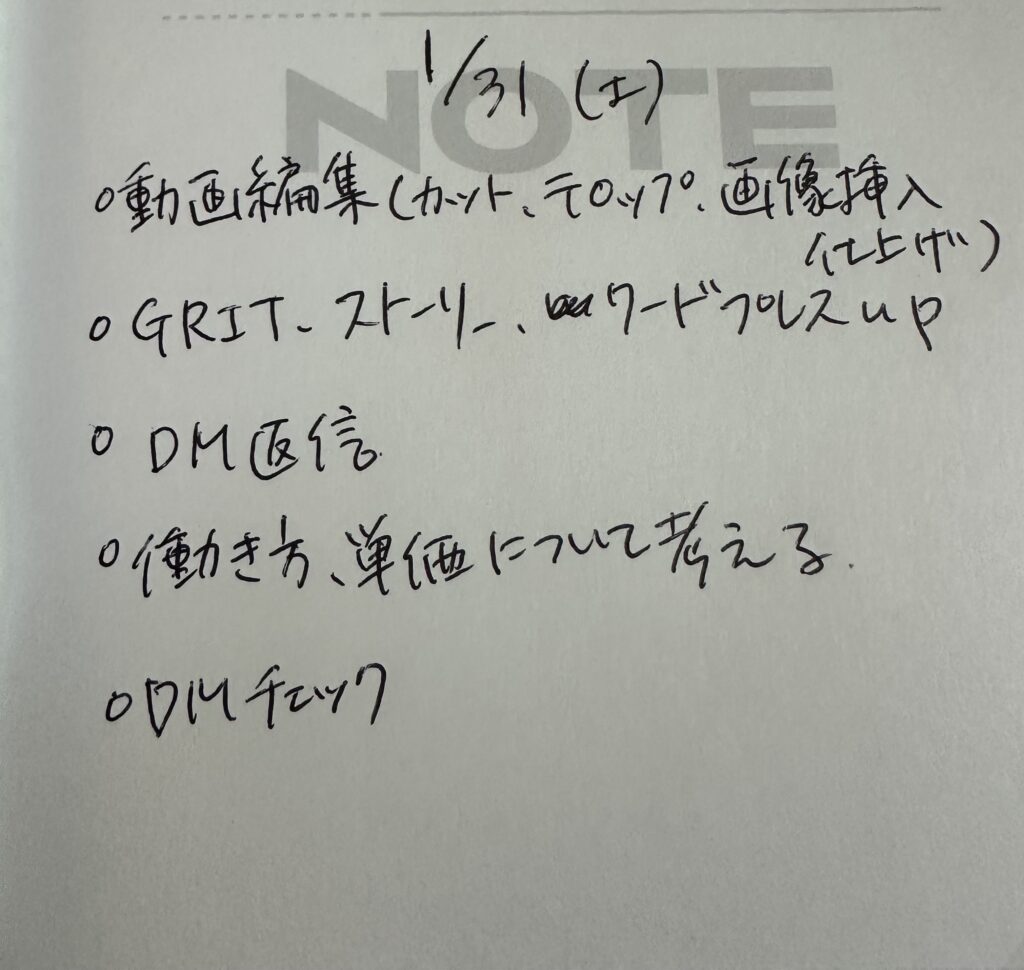 NOTE
1/31 (土)
○動画編集(カット、テロップ、画像挿入
仕上げ)
○GRIT、ストーリー、ワードプレスup
○DM返信
○働き方、単価について考える.
○DMチェック